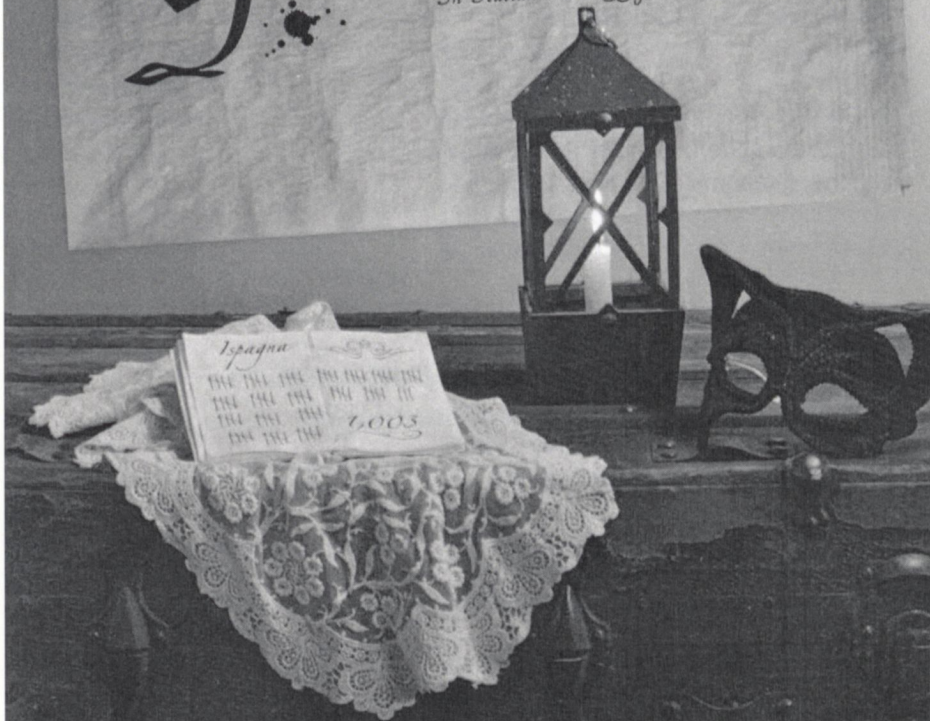 In
Ispagna
1,003